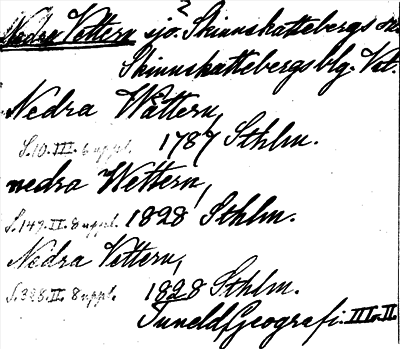 Nedra Vettern sjö. Skinnskattebergs sn
Skinnskattebergs blg. Vstl.
Nedra Wättern,
S.10. III. 6 uppl. 1787 Sthlm.
nedra Wettern,
S.149. II. 8 uppl. 1828 Sthlm.
Nedra Vettern,
S.328. II. 8 uppl. 1828 Sthlm.
Tuneld, Geografi. III. II.